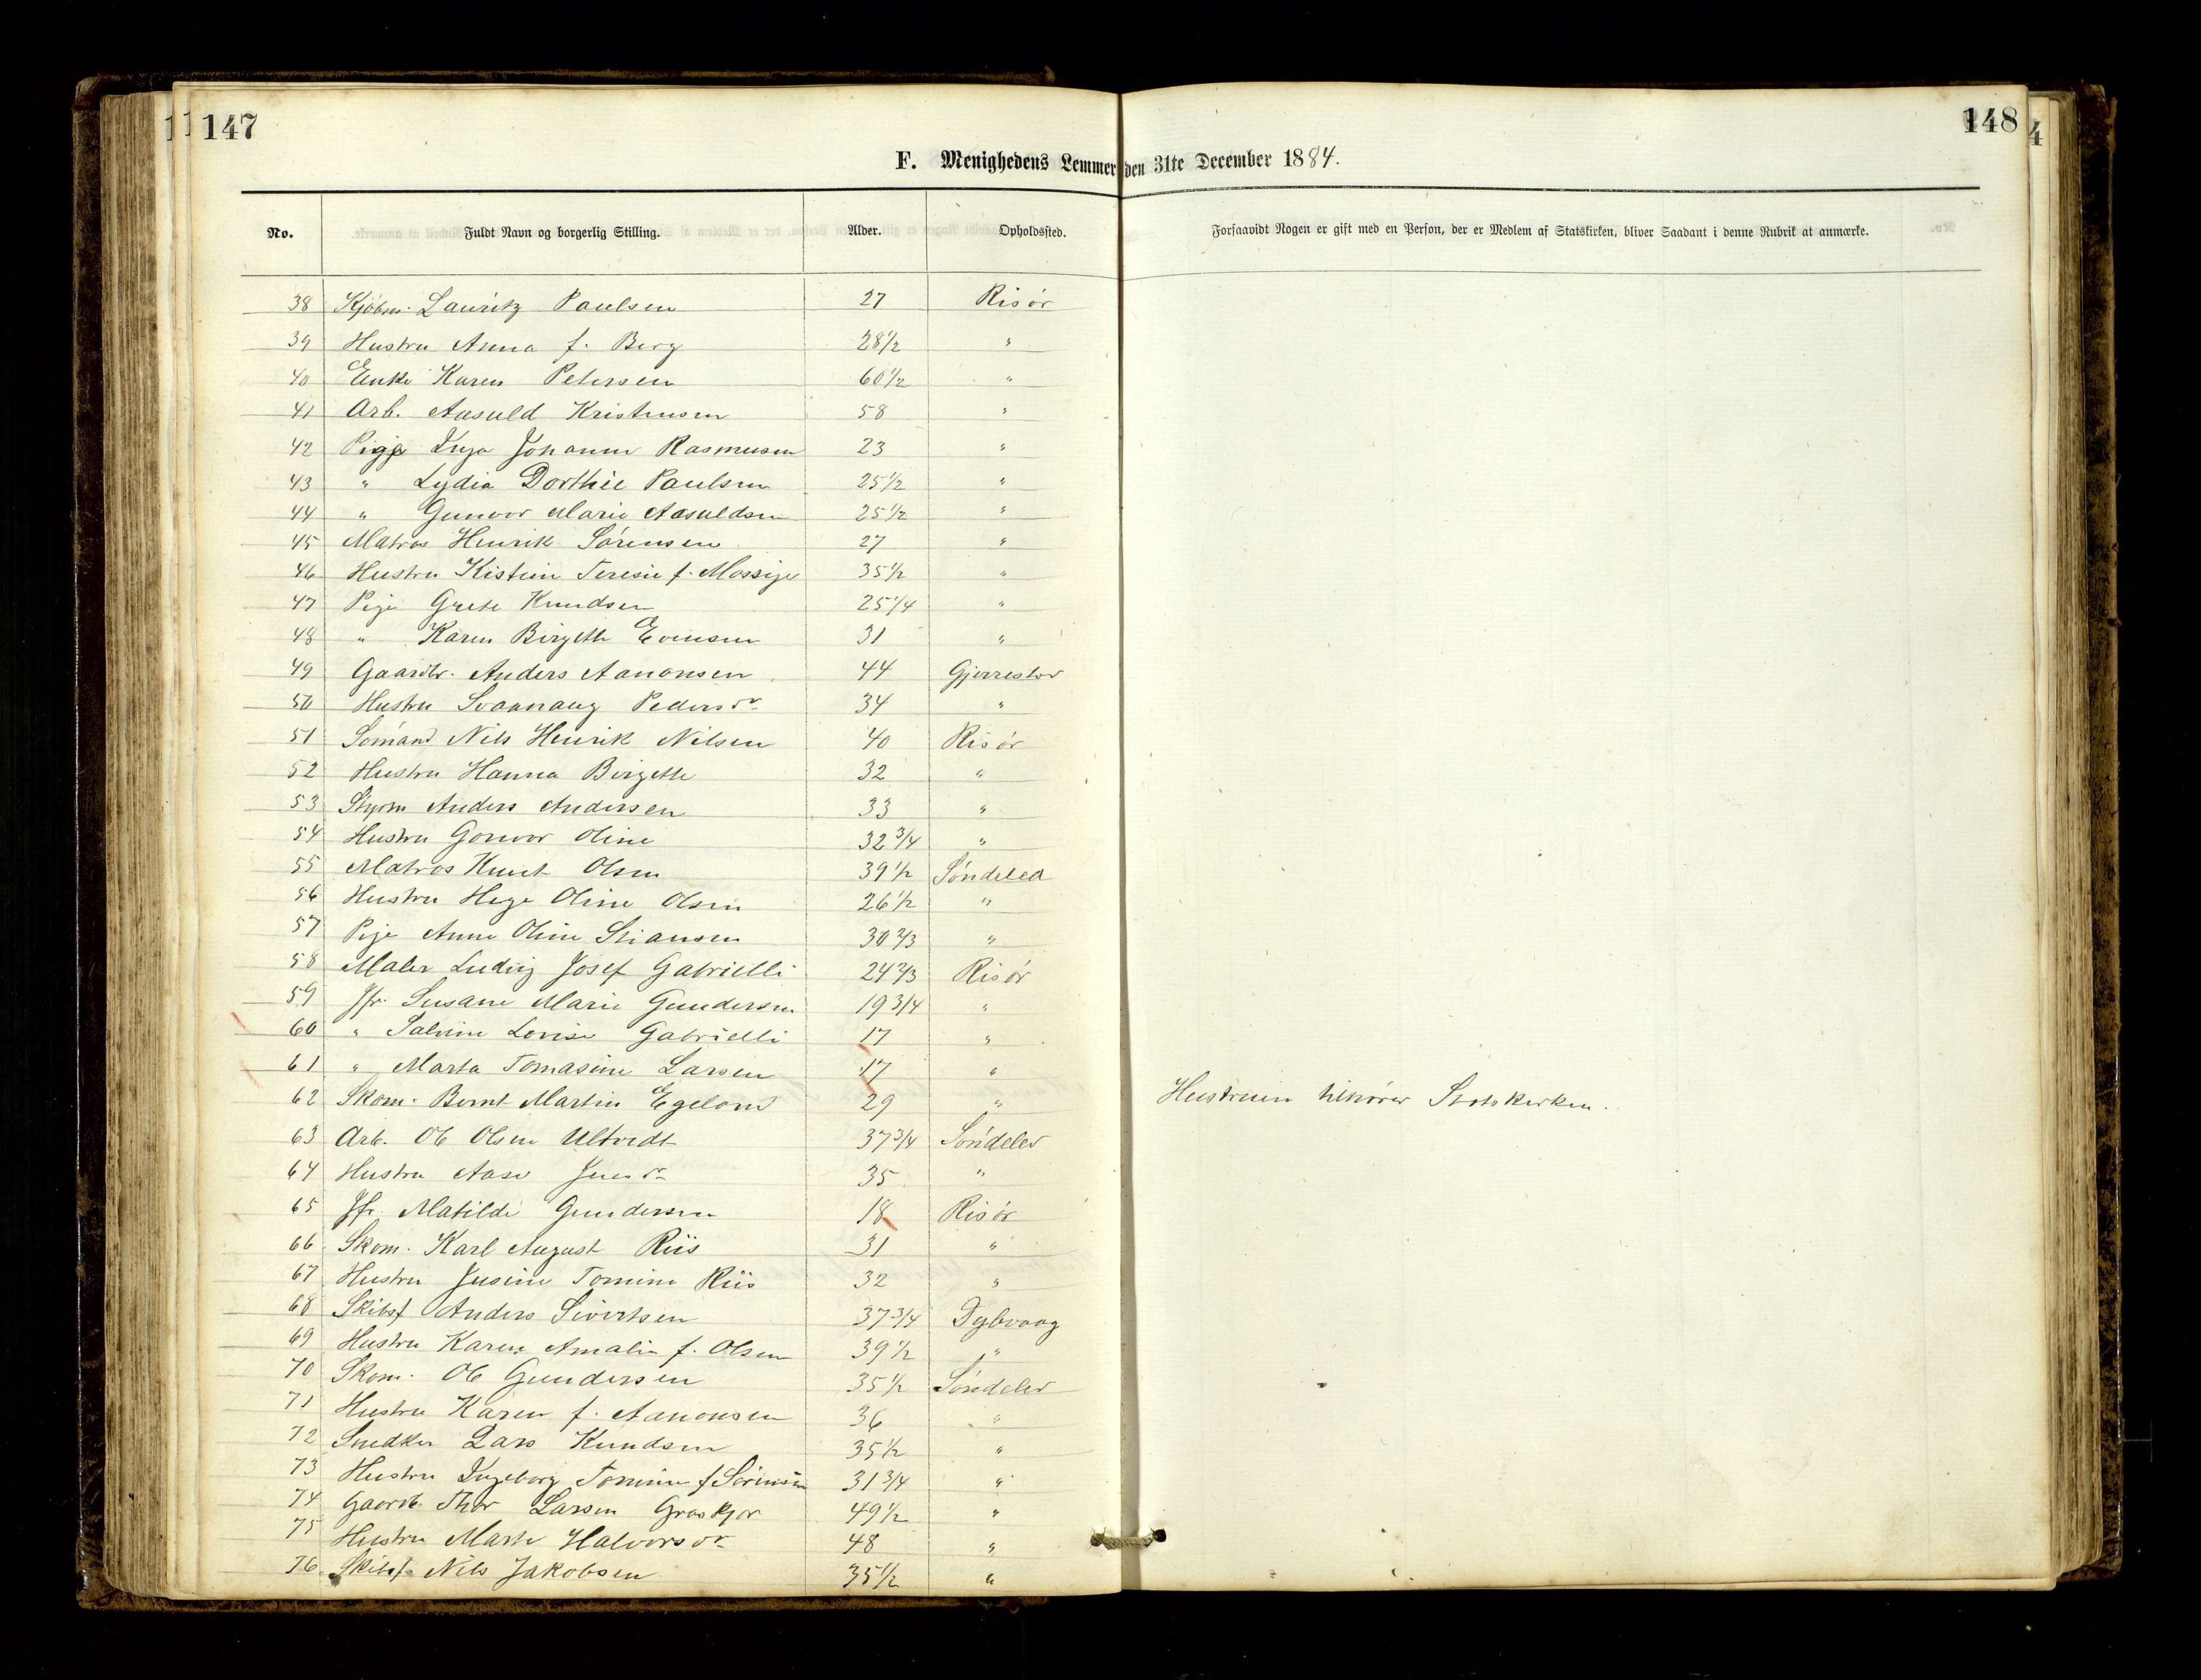 147
148
4
F. Menighedens Lemmer den 31te December 1884.
No. Fuldt Navn og borgerlig Stilling. Alder. Opholdssted. Forsaavidt Nogen er gift med en Person, der er Medlem af Statskirken, bliver Saadant i denne Rubrik at anmærke.
38 Kjöbm. Lauritz Paulsen 27 Risör
39 Hustru Anna f. Berg 28 1/2 "
40 Enke Karen Petersen 60 1/2 "
41 Arb. Aasuld Kristensen 58 "
42 Pige Inga Johanne Rasmusen 23 "
43 " Lydia Dorthie Paulsen 25 1/2 "
44 " Gunvor Marie Aasuldsen 25 1/2 "
45 Matros Henrik Sörensen 27 "
46 Hustru Kistine Teresie f. Mossige 35 1/2 "
47 Pige Grete Knudsen 25 1/4 "
48 " Karen Birgette Evensen 31 "
49 Gaardbr. Anders Aanonsen 44 Gjerrestad
50 Hustru Svanaug Pedersdr 34 "
51 Sömand Nils Henrik Nilsen 40 Risör
52 Hustru Hanna Birgette 32 "
53 Styrm Anders Andersen 33 "
54 Hustru Gonvor Oline 32 3/4 "
55 Matros Knut Olsen 39 1/2 Söndeled
56 Hustru Hege Oline Olsen 26 1/2 "
57 Pige Anne Oline Stiansen 30 2/3 "
58 Maler Ludvig Josef Gabrielli 24 2/3 Risör
59 Jfr. Susane Marie Gundersen 19 3/4 "
60 " Salvine Lovise Gabrielli 17 "
61 " Marta Tomasine Larsen 17 "
62 Skom. Bernt Martin Egeland 29 " Hustruen tilhører Statskirken.
63 Arb. Ole Olsen Ultvedt 37 3/4 Söndeled
64 Hustru Aase Jensdr 35 "
65 Jfr. Matilde Gundersen 18 Risör
66 Skom. Karl August Riis 31 "
67 Hustru Jusine Tomine Riis 32 "
68 Skibsf Anders Sivertsen 37 3/4 Dybvaag
69 Hustru Karen Amalie f. Olsen 39 1/2 "
70 Skom. Ole Gundersen 35 1/2 Söndeled
71 Hustru Karen f. Aanonsen 36 "
72 Snedker Lars Knudsen 35 1/2 "
73 Hustru Ingeborg Tomine f Sörensen 31 3/4 "
74 Gaardb. Thor Larsen 49 1/2 "
75 Hustru Marte Halvorsdr 48 "
76 Skibsf. Nils Jakobsen 35 1/2 "